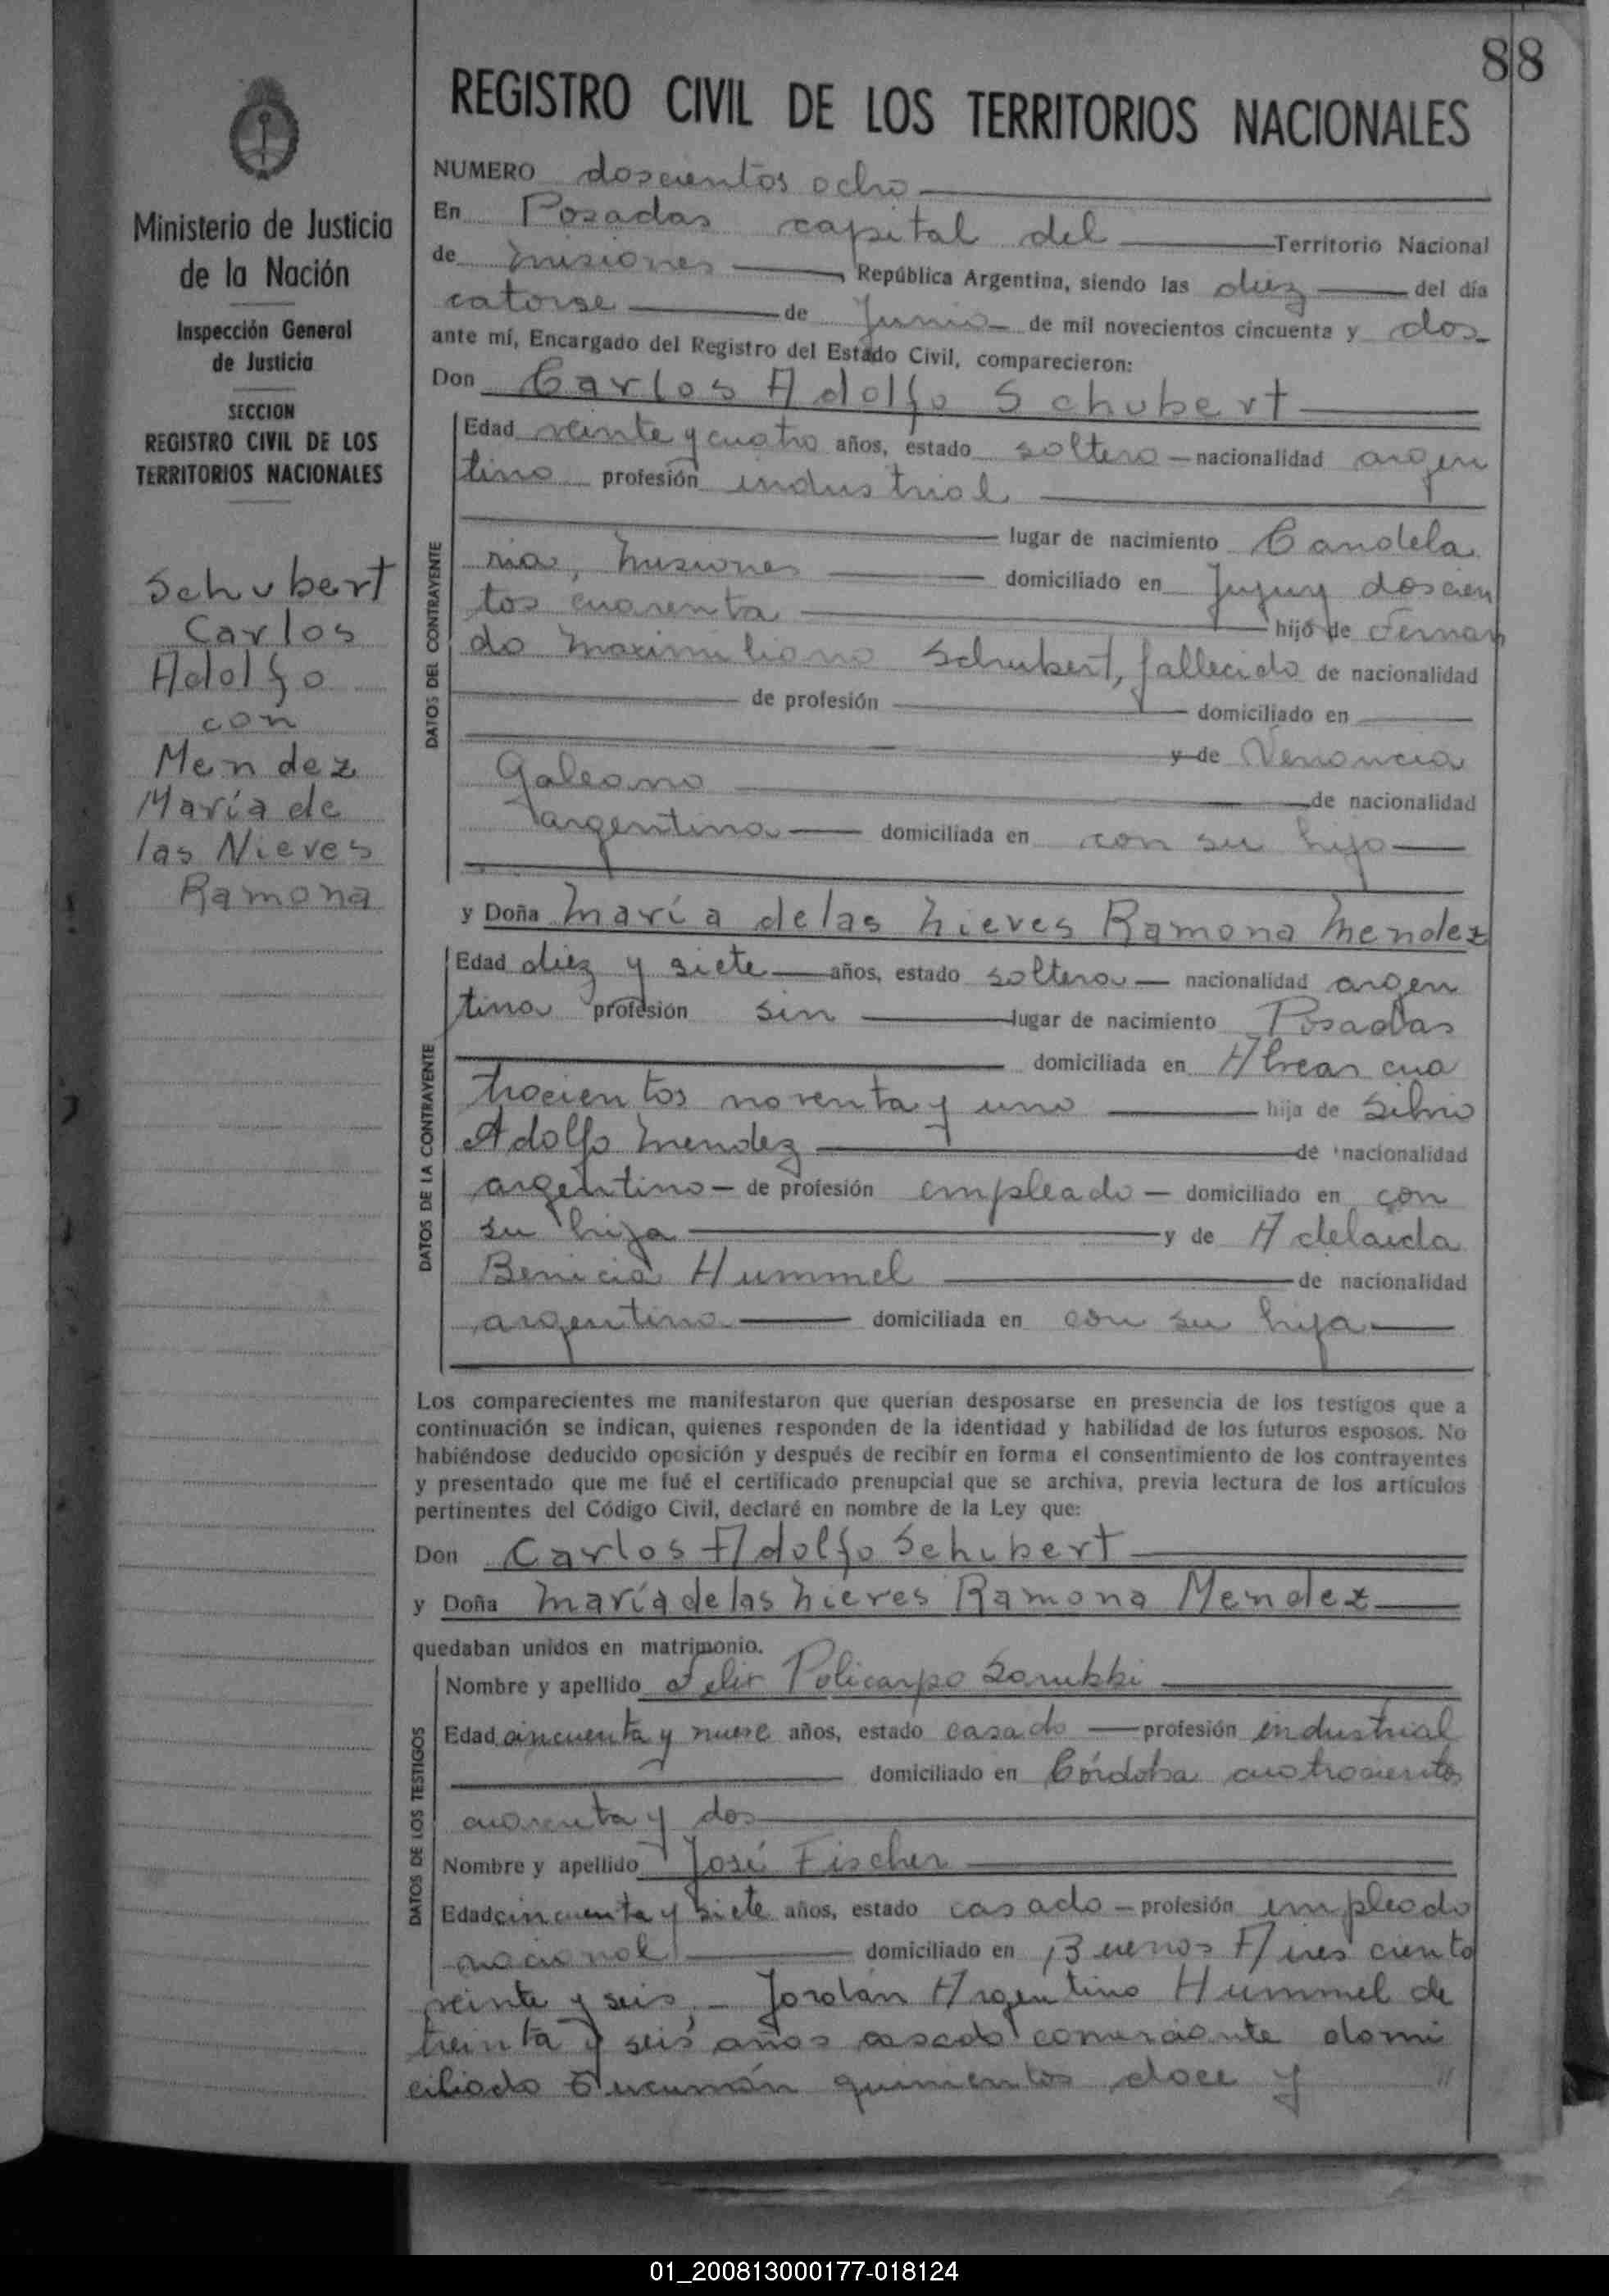 88
REGISTRO CIVIL DE LOS TERRITORIOS NACIONALES
Ministerio de Justicia
de la Nación
Inspección General
de Justicia
SECCION
REGISTRO CIVIL DE LOS
TERRITORIOS NACIONALES
Schubert
Carlos
Adolfo
con
Mendez
María de
las Nieves
Ramona
NUMERO doscientos ocho
En Posadas capital del Territorio Nacional
de Misiones, República Argentina, siendo las diez del día
catorse de Junio de mil novecientos cincuenta y dos
ante mí, Encargado del Registro del Estado Civil, comparecieron:
Don Carlos Adolfo Schubert
DATOS DEL CONTRAYENTE
Edad veinte y cuatro años, estado soltero nacionalidad argen
tino profesión industrial
lugar de nacimiento Candela
ria, Misiones domiciliado en Jujuy doscien
tos cuarenta hijo de Fernan
do Maximiliano Schubert, fallecido de nacionalidad
de profesión domiciliado en
y de Venancia
Galeano de nacionalidad
argentina domiciliada en con su hijo
y Doña María de las Nieves Ramona Mendez
DATOS DE LA CONTRAYENTE
Edad diez y siete años, estado soltera nacionalidad argen
tina profesión sin lugar de nacimiento Posadas
domiciliada en Alvear cua
trocientos noventa y uno hija de Silvio
Adolfo Mendez de nacionalidad
argentino de profesión empleado domiciliado en con
su hija y de Adelaida
Benicia Hummel de nacionalidad
argentina domiciliada en con su hija
Los comparecientes me manifestaron que querían desposarse en presencia de los testigos que a
continuación se indican, quienes responden de la identidad y habilidad de los futuros esposos. No
habiéndose deducido oposición y después de recibir en forma el consentimiento de los contrayentes
y presentado que me fué el certificado prenupcial que se archiva, previa lectura de los artículos
pertinentes del Código Civil, declaré en nombre de la Ley que:
Don Carlos Adolfo Schubert
y Doña María de las Nieves Ramona Mendez
quedaban unidos en matrimonio.
DATOS DE LOS TESTIGOS
Nombre y apellido Policarpo
Edad cincuenta y nueve años, estado casado profesión industrial
domiciliado en Córdoba cuatrocientos
cuarenta y dos
Nombre y apellido José Fischer
Edad cincuenta y siete años, estado casado profesión empleado
nacional domiciliado en Buenos Aires ciento
veinte y seis, Jordán Argentino Hummel de
treinta y seis años casado comerciante domi
ciliado Tucumán quinientos doce y "
01_200813000177-018124